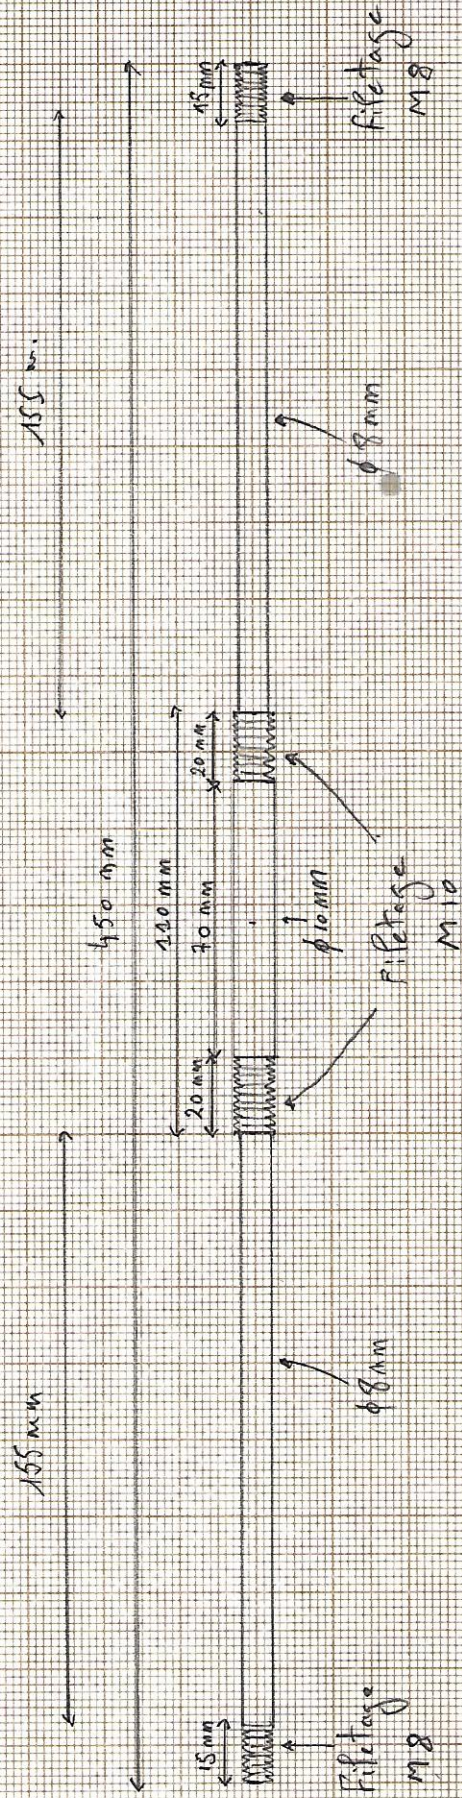 155 mm
155 m.
450 mm
110 mm
15 mm
20 mm
70 mm
20 mm
15 mm
Filetage
M8
ϕ8mm
ϕ10mm
Filetage
M10
ϕ8mm
Filetage
M8